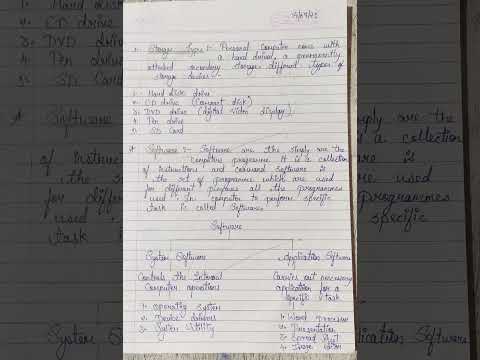 Storage Type :- Personal Computer comes with
a hard drive, a permanently
attached secondary storage different types of
storage devices :-
1. Hard disk drive
2. CD drive (Compact disk)
3. DVD drive (digital video display)
4. Pen drive
5. SD Card
* Software :- Software are the simply are the
computer programme. It is a collection
of instructions and command software is
the set of programme which are used
for different purposes all the programmes
used in computer to perform specific
task is called software.
Software
System Software Application Software
Controls the Internal Carries out necessary
Computer operations application for a
specific task
1. operating system 1. Word Processor
2. Device drivers 2. Presentation
3. System Utility 3. Spread Sheet
4.